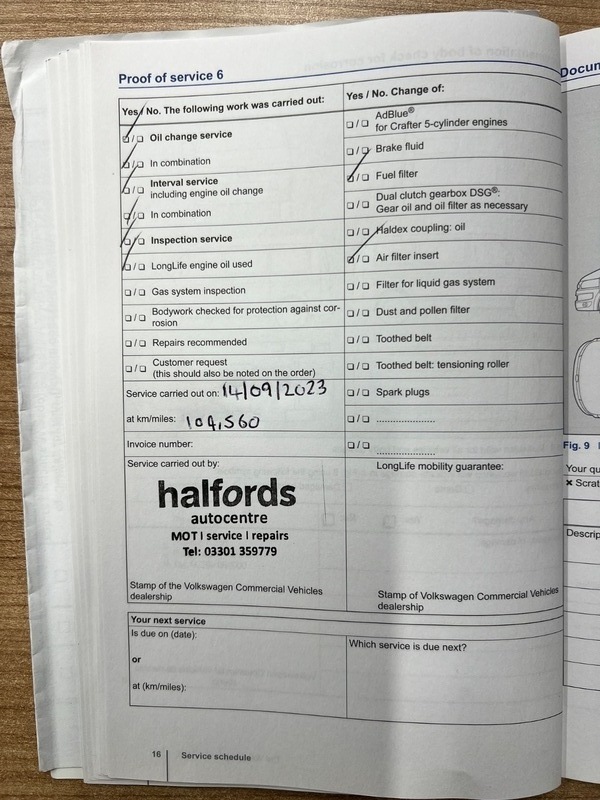 Proof of service 6
Yes / No. The following work was carried out:
Oil change service
In combination
Interval service
including engine oil change
In combination
Inspection service
LongLife engine oil used
Gas system inspection
Bodywork checked for protection against cor-
rosion
Repairs recommended
Customer request
(this should also be noted on the order)
Service carried out on: 14/09/2023
at km/miles: 109,560
Invoice number:
Service carried out by:
halfords
autocentre
MOT I service I repairs
Tel: 03301 359779
Stamp of the Volkswagen Commercial Vehicles
dealership
Yes / No. Change of:
AdBlue®
for Crafter 5-cylinder engines
Brake fluid
Fuel filter
Dual clutch gearbox DSG®:
Gear oil and oil filter as necessary
Haldex coupling: oil
Air filter insert
Filter for liquid gas system
Dust and pollen filter
Toothed belt
Toothed belt: tensioning roller
Spark plugs
LongLife mobility guarantee:
Stamp of Volkswagen Commercial Vehicles
dealership
Your next service
Is due on (date):
or
at (km/miles):
Which service is due next?
16 Service schedule
Fig. 9